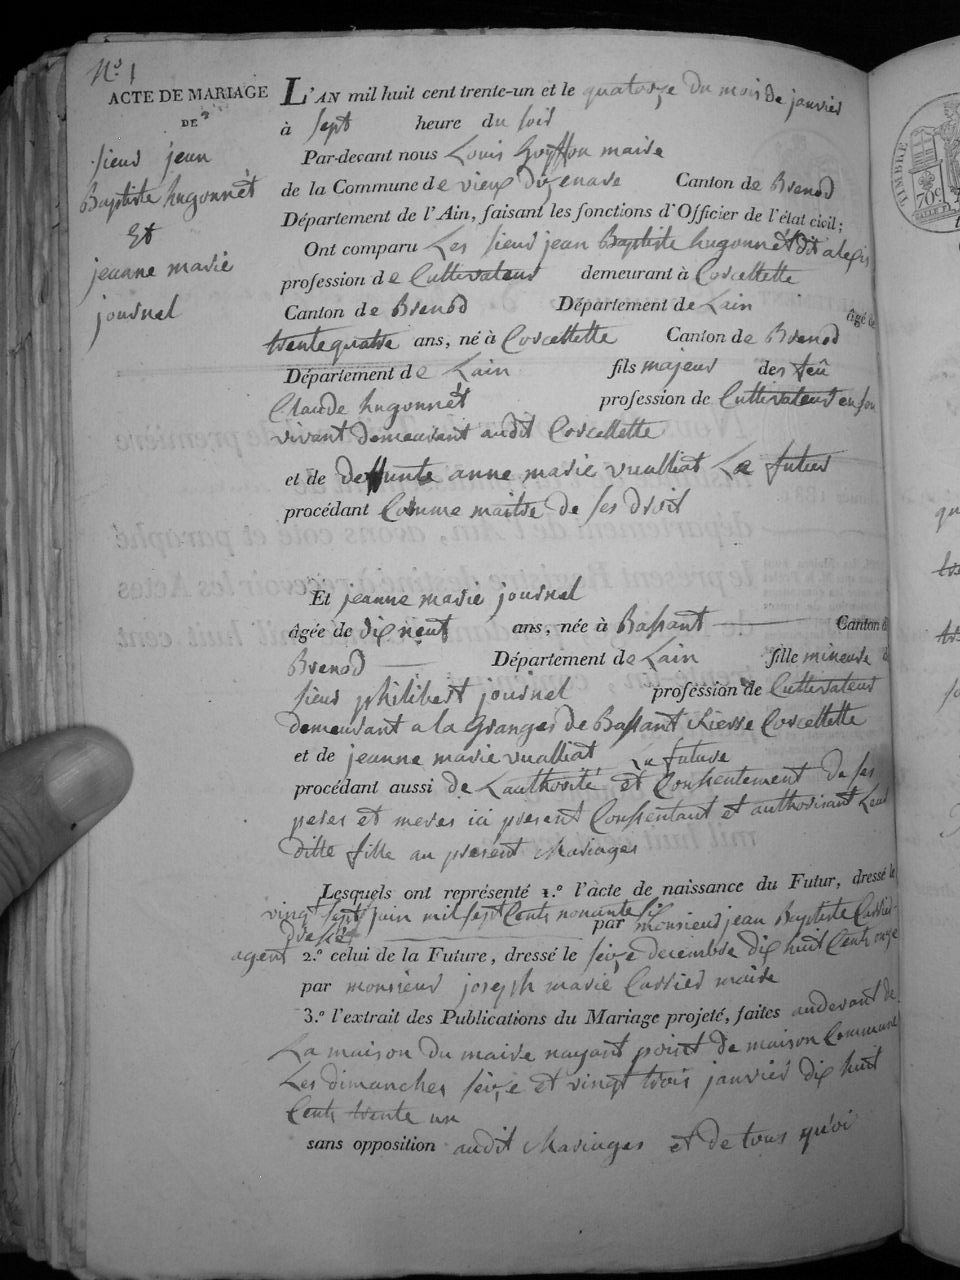 N.º 1
ACTE DE MARIAGE
DE
sieur jean
Baptiste hugonnét
Et
jeanne marie
journel
L'AN mil huit cent trente-un et le quatorze du mois de janvier
à sept heure du soir
Par-devant nous Louis Goyffon maire
de la Commune de vieux dizenave Canton de Brenod
Département de l'Ain, faisant les fonctions d'Officier de l'état civil;
Ont comparu Les sieur jean Baptiste hugonnét dit alexis
profession de Cultivateur demeurant à Corcellette
Canton de Brenod Département de Lain âgé de
trente quatre ans, né à Corcellette Canton de Brenod
Département de Lain fils majeur des feû
Claude hugonnét profession de Cultivateur en son
vivant demeurant audit Corcellette
et de deffunte anne marie vualliat Le futur
procédant Comme maitre de ses droit
Et jeanne marie journel
âgée de dix neuf ans, née à Bassant Canton d
Brenod Département de Lain fille mineure d
sieur philibert journel profession de Cultivateur
demeurant a la Granges de Bassant Rierre Corcellette
et de jeanne marie vualliat La future
procédant aussi de Lauthorité et Consentement de ses
peres et meres ici present Consentant et authorisant Leur
ditte fille au present Mariages
Lesquels ont représenté 1.º l'acte de naissance du Futur, dressé le
vingt sept juin mil sept Cents nonante six par monsieur jean Baptiste Carrier
agent 2.º celui de la Future, dressé le seize decembre dix huit Cents onze
par monsieur joseph marie Carrier maire
3.º l'extrait des Publications du Mariage projeté, faites audevant de
La maison du maire nayant point de maison Commune
Les dimanches seize et vingt trois janvier dix huit
Cents trente un
sans opposition audit Mariages et de tous quoi
TIMBRE
70c